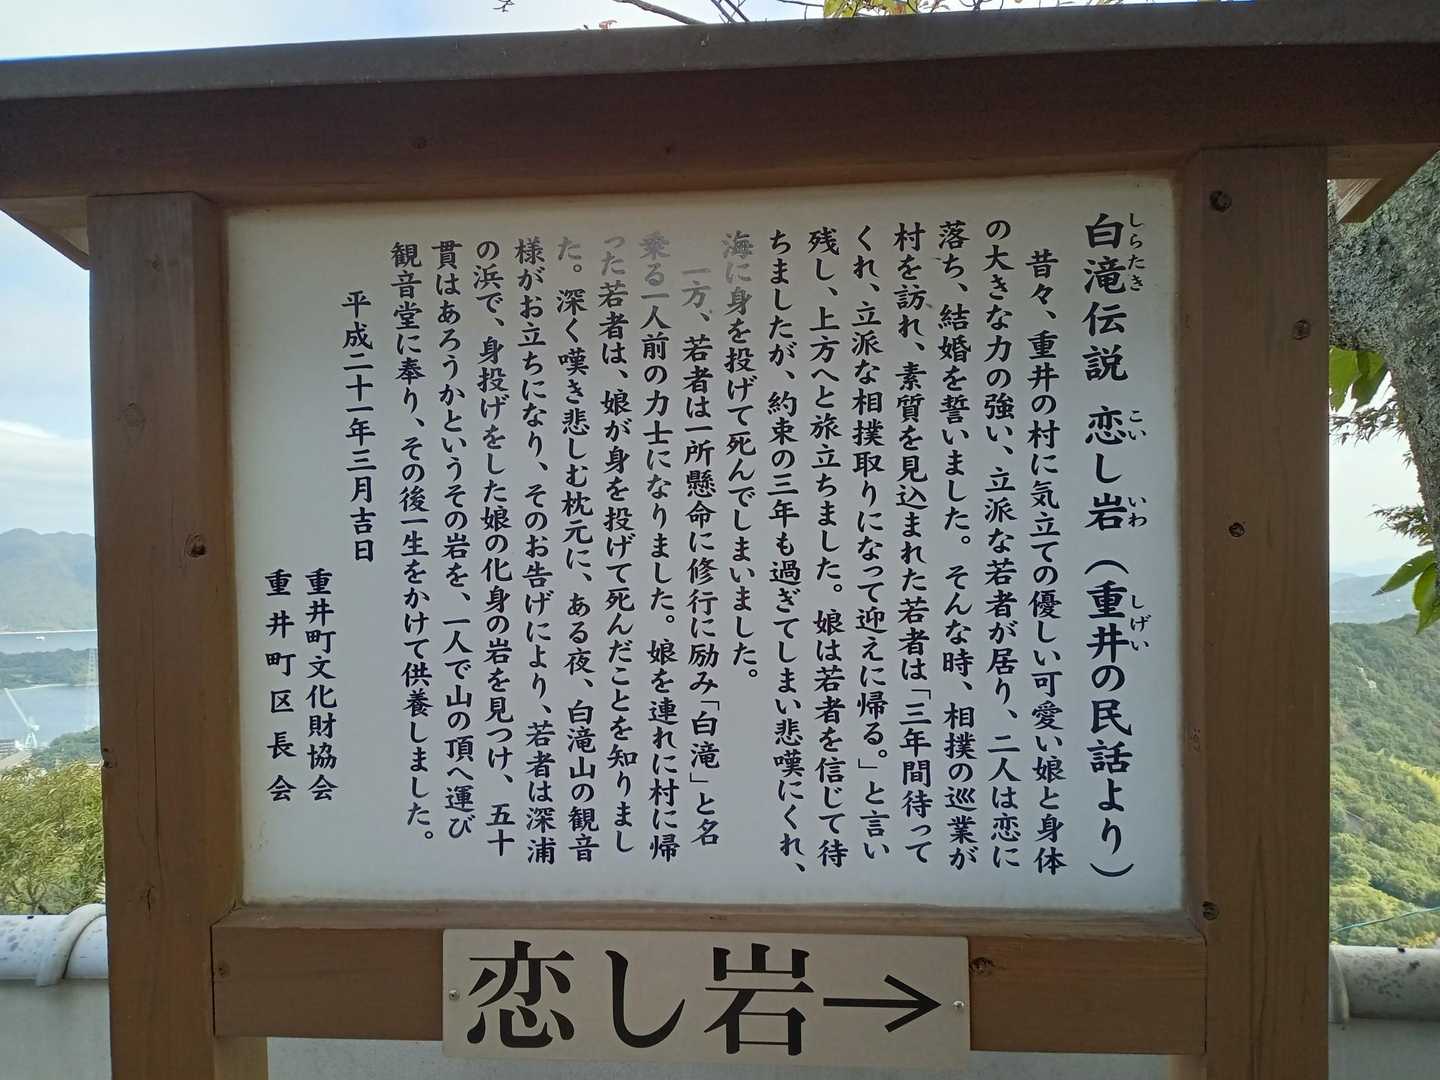 白滝伝説 恋し岩(重井の民話より)
しらたき こい いわ しげい
昔々、重井の村に気立ての優しい可愛い娘と身体
の大きな力の強い、立派な若者が居り、二人は恋に
落ち、結婚を誓いました。そんな時、相撲の巡業が
村を訪れ、素質を見込まれた若者は「三年間待って
くれ、立派な相撲取りになって迎えに帰る。」と言い
残し、上方へと旅立ちました。娘は若者を信じて待
ちましたが、約束の三年も過ぎてしまい悲嘆にくれ、
海に身を投げて死んでしまいました。
一方、若者は一所懸命に修行に励み「白滝」と名
乗る一人前の力士になりました。娘を連れに村に帰
った若者は、娘が身を投げて死んだことを知りまし
た。深く嘆き悲しむ枕元に、ある夜、白滝山の観音
様がお立ちになり、そのお告げにより、若者は深浦
の浜で、身投げをした娘の化身の岩を見つけ、五十
貫はあろうかというその岩を、一人で山の頂へ運び
観音堂に奉り、その後一生をかけて供養しました。
平成二十一年三月吉日
重井町文化財協会
重井町区長会
恋し岩→